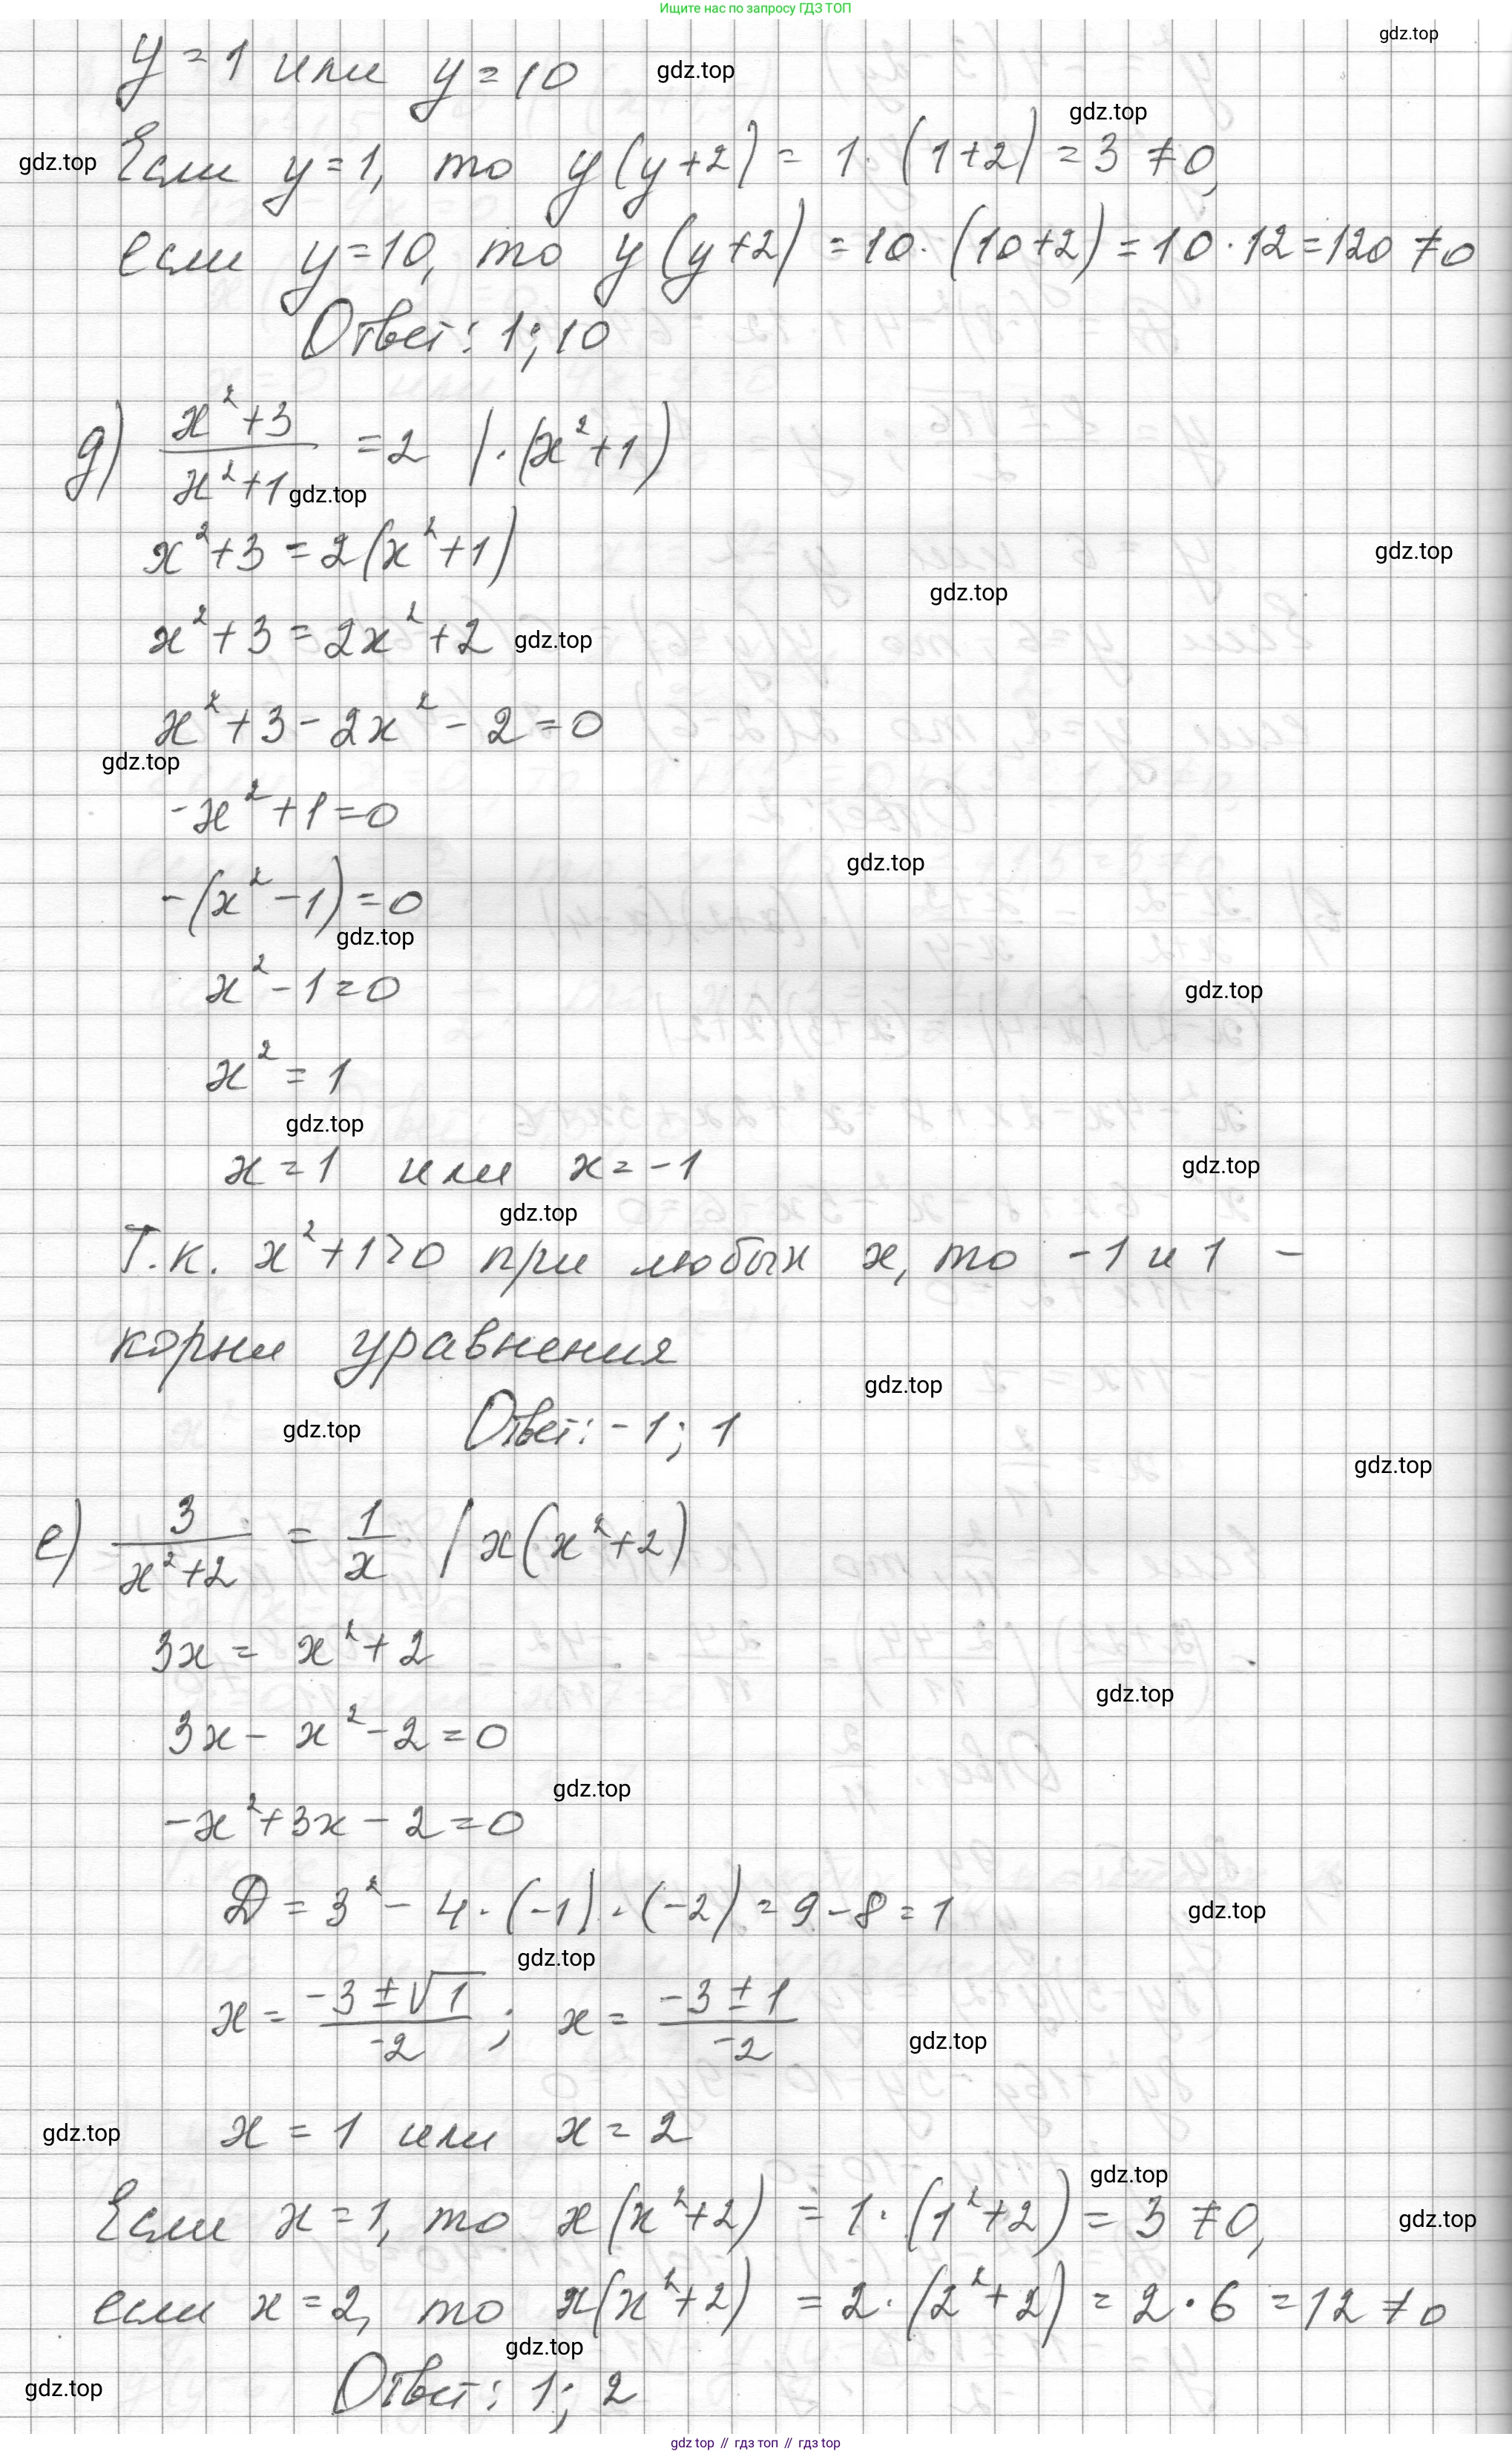 Ищите нас по запросу ГДЗ ТОП
gdz.top
y = 1 или y = 10
gdz.top
gdz.top
gdz.top
Если y = 1, то y(y+2) = 1·(1+2) = 3 ≠ 0,
если y = 10, то y(y+2) = 10·(10+2) = 10·12 = 120 ≠ 0
Ответ: 1; 10
д) (x²+3)/(x²+1) = 2 |·(x²+1)
gdz.top
x²+3 = 2(x²+1)
gdz.top
gdz.top
x²+3 = 2x²+2
gdz.top
x²+3-2x²-2=0
gdz.top
-x²+1=0
gdz.top
-(x²-1)=0
gdz.top
x²-1=0
gdz.top
x² = 1
gdz.top
x = 1 или x = -1
gdz.top
gdz.top
Т.к. x²+1>0 при любых x, то -1 и 1 -
корни уравнения
gdz.top
Ответ: -1; 1
gdz.top
gdz.top
е) 3/(x²+2) = 1/x | x(x²+2)
3x = x²+2
gdz.top
3x - x² - 2 = 0
gdz.top
-x²+3x-2=0
D = 3² - 4·(-1)·(-2) = 9-8 = 1
gdz.top
gdz.top
x = (-3±√1)/(-2); x = (-3±1)/(-2)
gdz.top
x = 1 или x = 2
gdz.top
gdz.top
Если x = 1, то x(x²+2) = 1·(1²+2) = 3 ≠ 0,
gdz.top
если x = 2, то x(x²+2) = 2·(2²+2) = 2·6 = 12 ≠ 0
gdz.top
Ответ: 1; 2
gdz.top
gdz top // гдз топ // гдз top